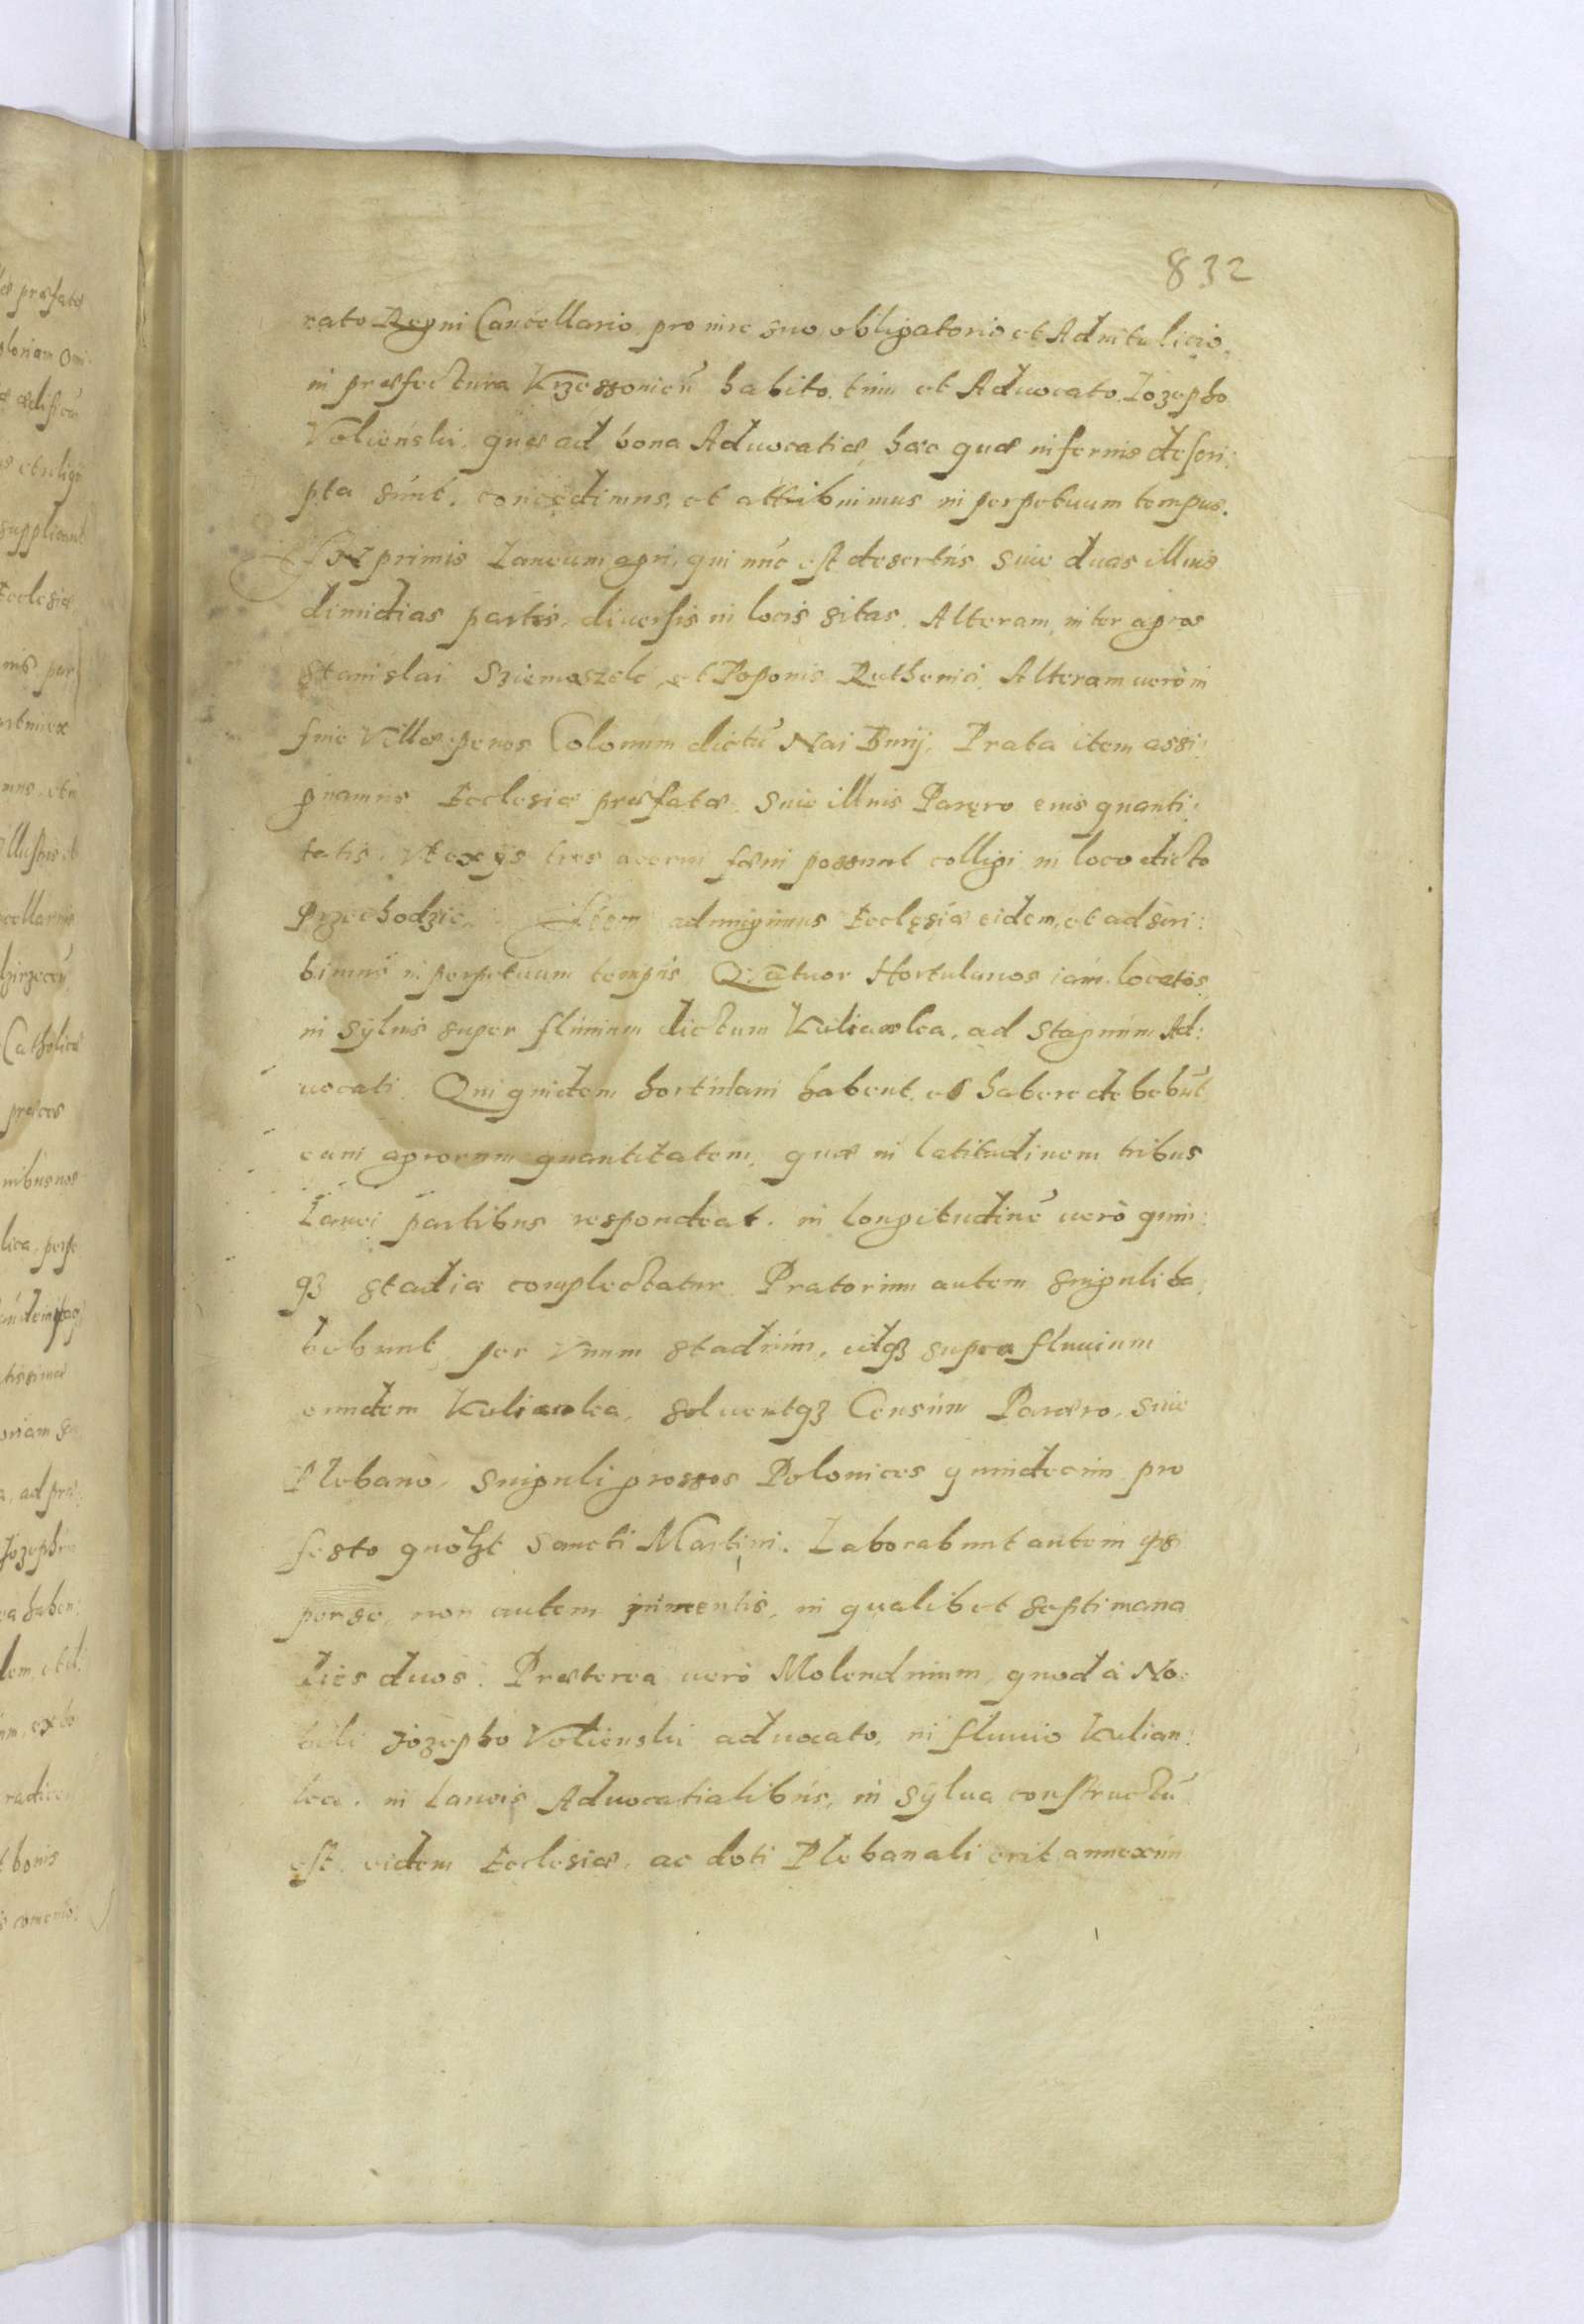 832
rato Regni Cancellario, pro iure suo obligatorio et Aduitalicio,
in præfectura Krzessoniẽn habito, tum et Aduocato Iozepho
Volienski, quæ ad bona Aduocatiæ, hæc quæ inferius descri:
pta sunt, concedimus, et attribuimus in perpetuum tempus.
primis Laneum agri, qui nũc est desertus siue duas illius
dimidias partes, diuersis in locis sitas, Alteram, inter agros
Stanislai Sziemaszek, et Poponis Ruthenici, Alteram uerò in
fine Villæ penes Colonum dictũ Nai Prata item assi:
gnamus Ecclesiæ præfatæ siue illius Paręro eius quanti:
tatis, Vt ex ijs tres acerui fœni possunt colligi in loco dicto
Przechodzie. Item adiungimus Ecclęsiæ eidem, et adscri:
bimus in perpetuum tempus Quatuor Hortulanos iam locatos
in syluis super fluuium dictum Kulianka, ad stagnum Ad:
uocati. Qui quidem hortulani habent, et habere debebũt
eam agrorum quantitatem, quæ in latitudinem tribus
Lanei partibus respondeat, in longitudinẽ uerò quin:
qꝫ stadia complectatur Pratorum autem singuli ha:
bebunt, per Vnum stadium, idqꝫ supra fluuium
eundem Kulianka, soluentqꝫ Censum Paræro, siue
Plebano, singuli grossos Polonices quindecim pro
festo quõlꝫt Sancti Martini. Laborabunt autem
per se, non autem iumentis, in qualibet septimana
dies duos. Præterea uerò Molendinum, quod à No:
bili Jozepho Volienski aduocato, in fluuio Kulian:
ka, in Laneis Aduocatialibus, in sylua constructũ
est, eidem Ecclesiæ, ac doti Plebanali erit annexum